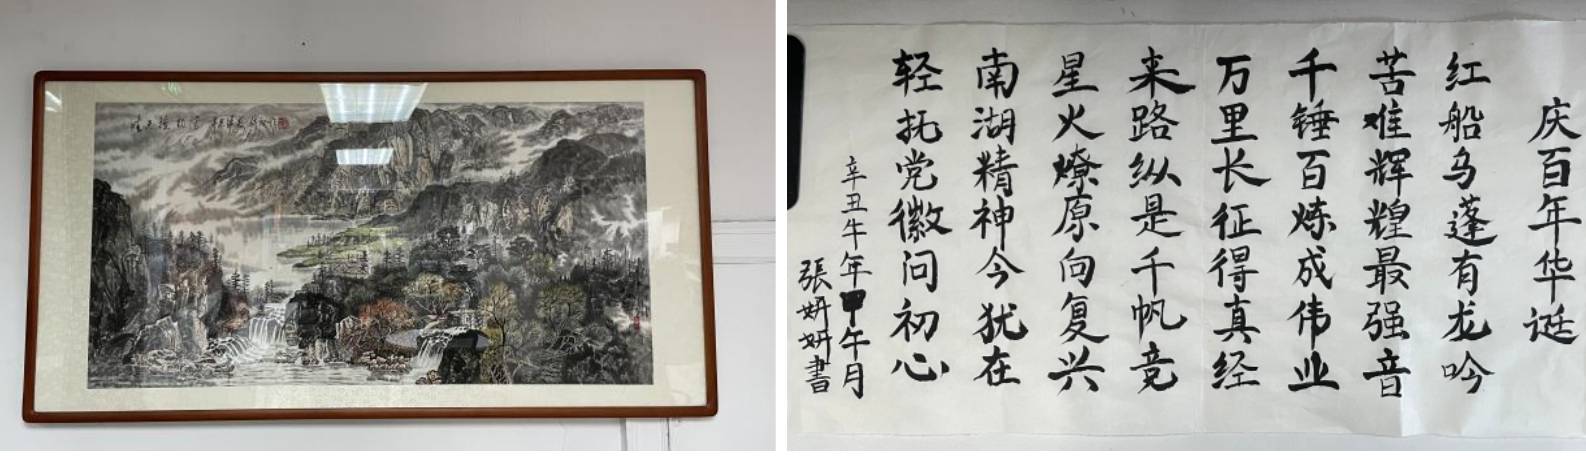 庆百年华诞
红船乌蓬有龙吟
苦难辉煌最强音
千锤百炼成伟业
万里长征得真经
来路纵是千帆竞
星火燎原向复兴
南湖精神今犹在
轻抚党徽问初心
辛丑牛年甲午月
張妍妍書